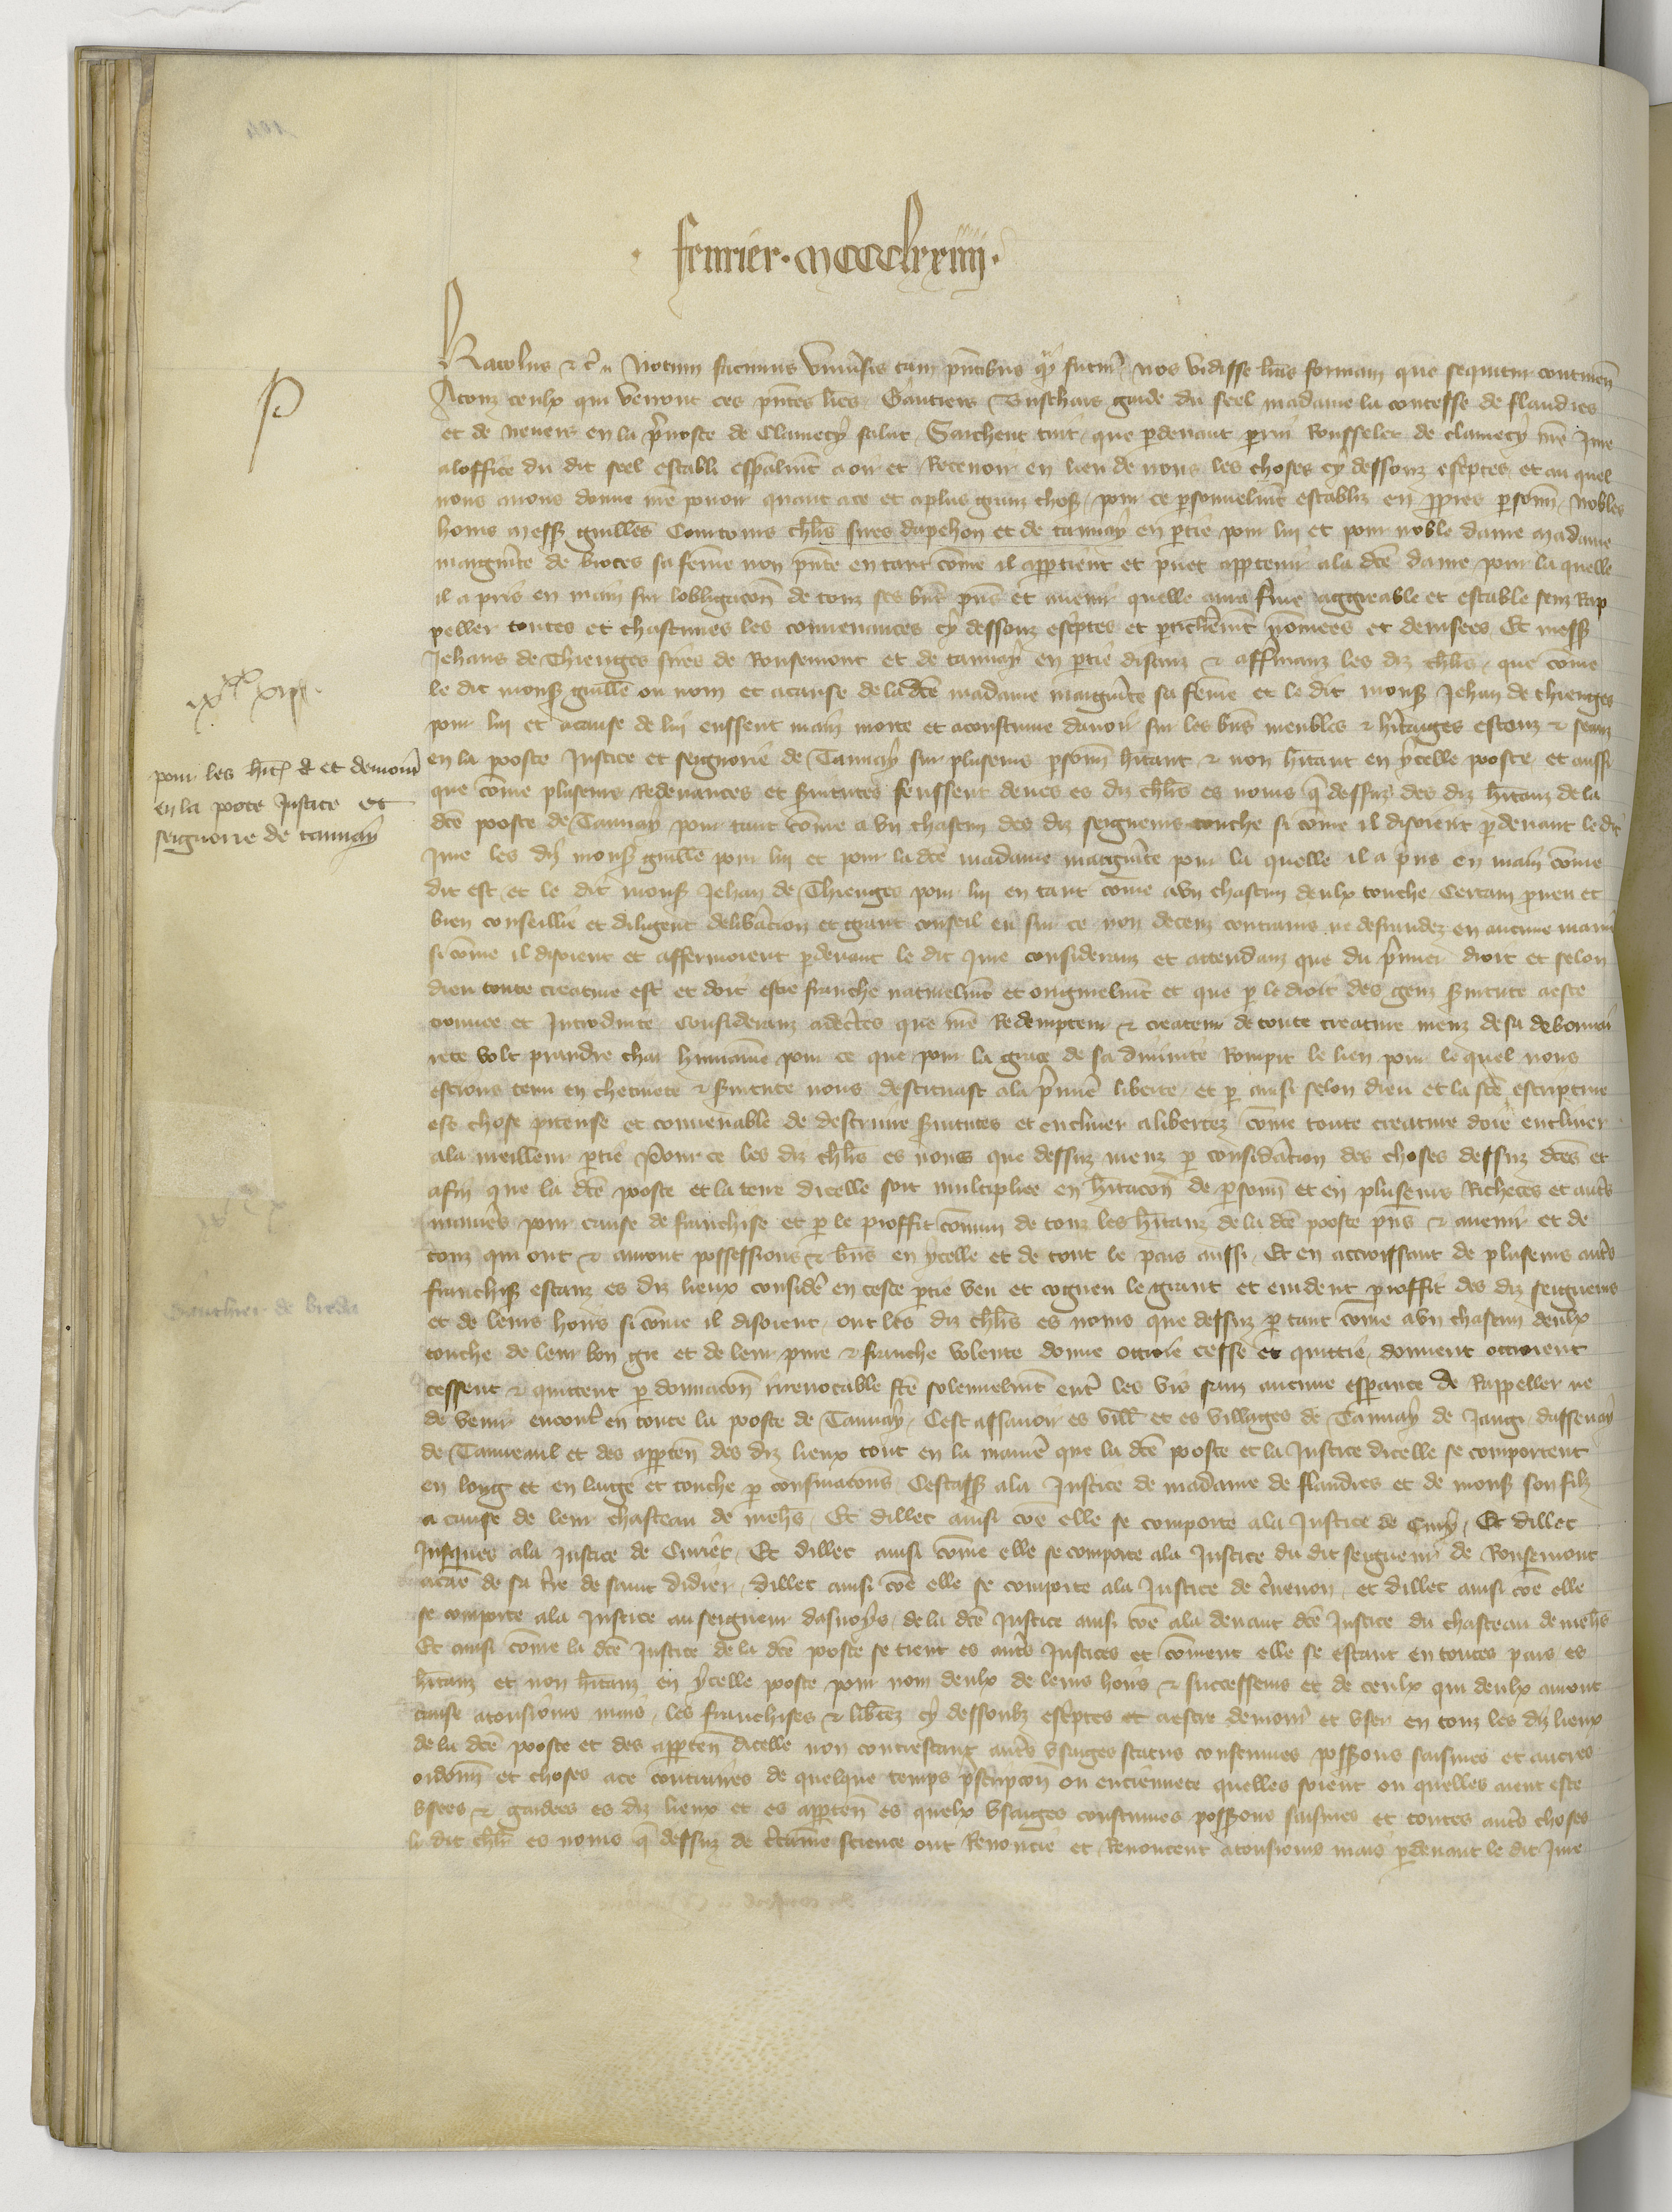 fevrier. mccclxxiiii.
Karolus &c̃ Notum facimus universis tam pñtibus q̃ futur̃ nos vidisse lr̃as formam que sequitur contineñ
A touz ceulx qui verront ces pñtes lr̃es Gautiers garde du seel madame la contesse de flandres
et de nevers en la p̃voste de Clamecy salut Saichent tuit que pdevant perrin Rousselet de clamecy nr̃e Jure
a loffice du dit seel establi esp̃alm̃t a oir et Recevoir en lieu de nous les choses cy dessouz escp̃tes et au quel
nous avons donne nr̃e povoir quant a ce et a plus grant chose pour ce psonnelm̃t establiz en ppres psoñn Nobles
homs mess guilles chl̃rs sires dapchon et de tannay en ptie pour lui et pour noble dame madame
marguite de broces sa fem̃e non pñte en tant com̃e il appartient et puet appartenir a la dc̃e dame pour la quelle
il a pris en main sur lobligacoñ de touz ses biẽs pñs et avenir quelle aura ferme aggreable et estable senz Rap
peller toutes et chascunes les convenances cy dessouz escp̃tes et pticlierem̃t nom̃ees et devisees Et mess
Jehans de Thienges sires de Rousemont et de tannay en ptie disanz & affermanz les diz chl̃rs que com̃e
le dit mons guille ou nom et a cause de la dc̃e madame marguite sa fem̃e et le dit mons Jehan de thienges
pour lui et a cause de lui eussent main morte et a coustume davoir sur les biẽs meubles & hr̃itaiges estanz & seanz
en la pooste Justice et seignorie de Tannay sur pluseurs psoñn hitant & non hitant en ycelle pooste et aussi
que com̃e pluseurs Redevances et s̃vitutes feussent deues es diz chl̃rs es noms q̃ dessuz des diz hitanz de la
dc̃e pooste de Tannay pour tant com̃e a un chascun des diz seigneurs touche si com̃e il disoient pdevant le dit
Jure les diz mons guille pour lui et pour la dc̃e madame marguite pour la quelle il a pris en main com̃e
dit est et le dit mons Jehan de Thienges pour lui en tant com̃e a un chascun deulx touche Certain pveu et
bien conseillie et diligent delibãcion et grant conseil eu sur ce non deceuz contrains ne defraudez en aucune mañ
si com̃e il disoient et affermoient pdevant le dit Jure consideranz et attendanz que du p̃mier droit et selon
dieu toute creature est et doit estre franche naturelm̃t et originelm̃t et que p le droit des genz s̃vitute a este
trouvee et Introduite Consideranz adcc̃tes que nr̃e Redempteur & createur de toute creature meuz de sa debonnai
rete volt prandre char humaine pour ce que pour la grace de sa divinite Rompit le lien pour le quel nous
estions tenu en chetivete & s̃vitute nous destituast a la p̃miẽ liberte et p ainsi selon dieu et la sc̃e escripture
est chose piteuse et convenable de destruire s̃vitutes et encliner a libertez com̃e toute creature doie encliner
a la meilleur ptie Pour ce les diz chl̃rs es noms que dessuz meuz p considãcion des choses dessuz dc̃es et
afin que la dc̃e pooste et la terre dicelle soit multipliee en hitacoñ de psoñn et en pluseurs Richeces et autr̃s
manier̃s pour cause de franchise et p le proffit com̃un de touz les hitanz de la dc̃e pooste pñs & avenir et de
touz qui ont & auront possessions & biẽs en ycelle et de tout le pais aussi Et en accroissant de pluseurs autr̃s
franchises estanz es diz lieux considẽ en ceste ptie veu et cogneu le grant et evident proffit des diz seigneurs
et de leurs hoirs si com̃e il disoient ont les diz chl̃rs es noms que dessuz p tant com̃e a un chascun deulx
touche de leur bon gre et de leur pure & franche volente donne ottroie cesse et quittie donnent ottroient
cessent & quittent p donnacoñ irrevocable fc̃e solennelm̃t entr̃ les vis sanz aucune espance de Rappeller ne
de venir encontr̃ en toute la pooste de Tannay Cest assavoir es vill et es villages de Tannay de Jaugi dassenay
de Tanneaul et des apptenñ des diz lieux tout en la manier̃ que la dc̃e pooste et la Justice dicelle se comportent
en long et en large et touche p confinacoñs Cestass a la Justice de madame de flandres et de mons son filz
a cause de leur chasteau de mehs Et dillec ainsi coẽ elle se comporte a la Justice de Cuzy Et dillec
Jusques a la Justice de Cuviet Et dillec ainsi com̃e elle se comporte a la Justice du dit seigneur de Rousemont
a caẽ de sa tr̃e de saint didier dillec ainsi coẽ elle se comporte a la Justice de et dillec ainsi coẽ elle
se comporte a la Justice au seigneur dasnoys de la dc̃e Justice ainsi coẽ a la devant dc̃e Justice du chasteau de mehs
Et ainsi com̃e la dc̃e Justice de la dc̃e pooste se tient es autr̃s Justices et com̃ent elle se estant en toutes pars es
hitanz et non hitanz en ycelle pooste pour nom deulx de leurs hoirs & successeurs et de ceulx qui deulx auront
cause a tousiours mais les franchises & lib̃tez cy dessoubz escp̃tes et a estre demour̃ et user en touz les diz lieux
de la dc̃e pooste et des apptenñ dicelle non contrestant autr̃s usaiges status coustumes possions saisines et autres
ordonñ et choses a ce contraires de quelque temps p̃scripcoñ ou enciennete quelles soient ou quelles aient este
usees & gardees es diz lieux et es apptenñ es quelx usaiges coustumes possions saisines et toutes autr̃s choses
le dit chl̃r es noms q̃ dessuz de c̃taine science ont Renoncie et Renoncent a tousiours mais pdevant le dit Jure
pour les hit̃ & et demour̃
en la poote Justice et
seignorie de tannay